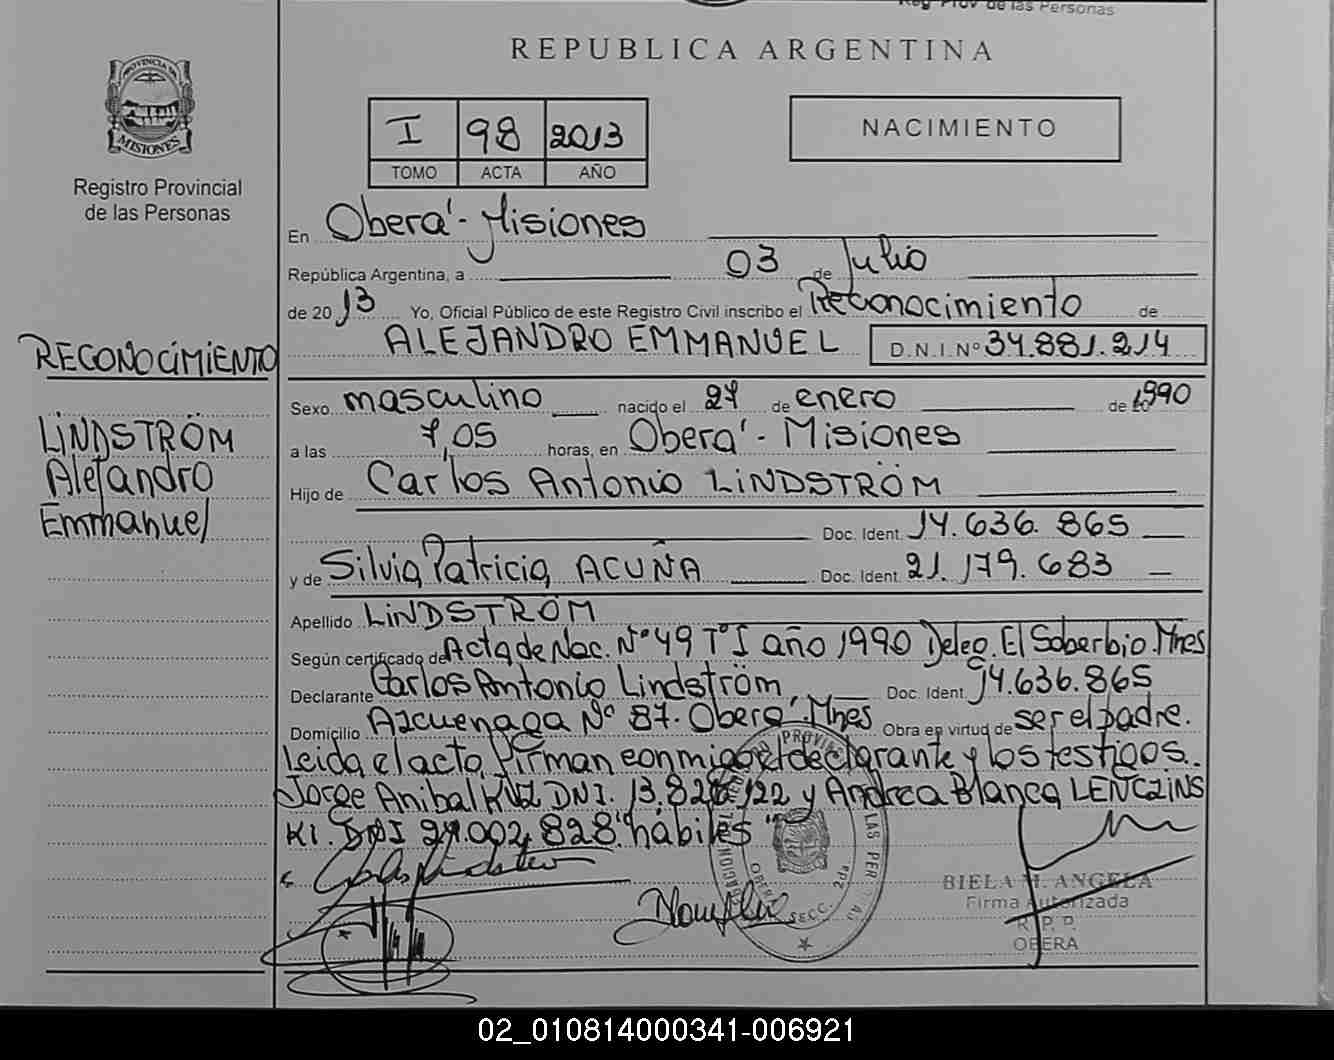 Reg Prov de las Personas
REPUBLICA ARGENTINA
PROVINCIA DE
MISIONES
Registro Provincial
de las Personas
I 98 2013
TOMO ACTA AÑO
NACIMIENTO
En Oberá - Misiones
República Argentina, a 03 de Julio
de 2013 Yo, Oficial Público de este Registro Civil inscribo el Reconocimiento de
ALEJANDRO EMMANUEL D.N.I.Nº 34.881.214
RECONOCIMIENTO
LINDSTRÖM
Alejandro
Emmanuel
Sexo masculino nacido el 27 de enero de 1990
a las 7,05 horas, en Oberá - Misiones
Hijo de Carlos Antonio LINDSTRÖM
Doc. Ident. 14.636.865
y de Silvia Patricia ACUÑA Doc. Ident. 21.179.683
Apellido LINDSTRÖM
Según certificado de Acta de Nac. Nº 49 Tº I año 1990 Deleg. El Soberbio. Mnes
Declarante Carlos Antonio Lindström, Doc. Ident. 14.636.865
Domicilio Azcuenaga Nº 87. Oberá. Mnes Obra en virtud de ser el padre.
Leida el acta, firman conmigo el declarante y los testigos
Jorge Anibal KUZ DNI. 13.828.122 y Andrea Blanca LENCZINS
KI. DNI 27.002.828 "hábiles"
BIELA M. ANGELA
Firma Autorizada
R. P. P.
OBERA
SECC. 2da
02_010814000341-006921